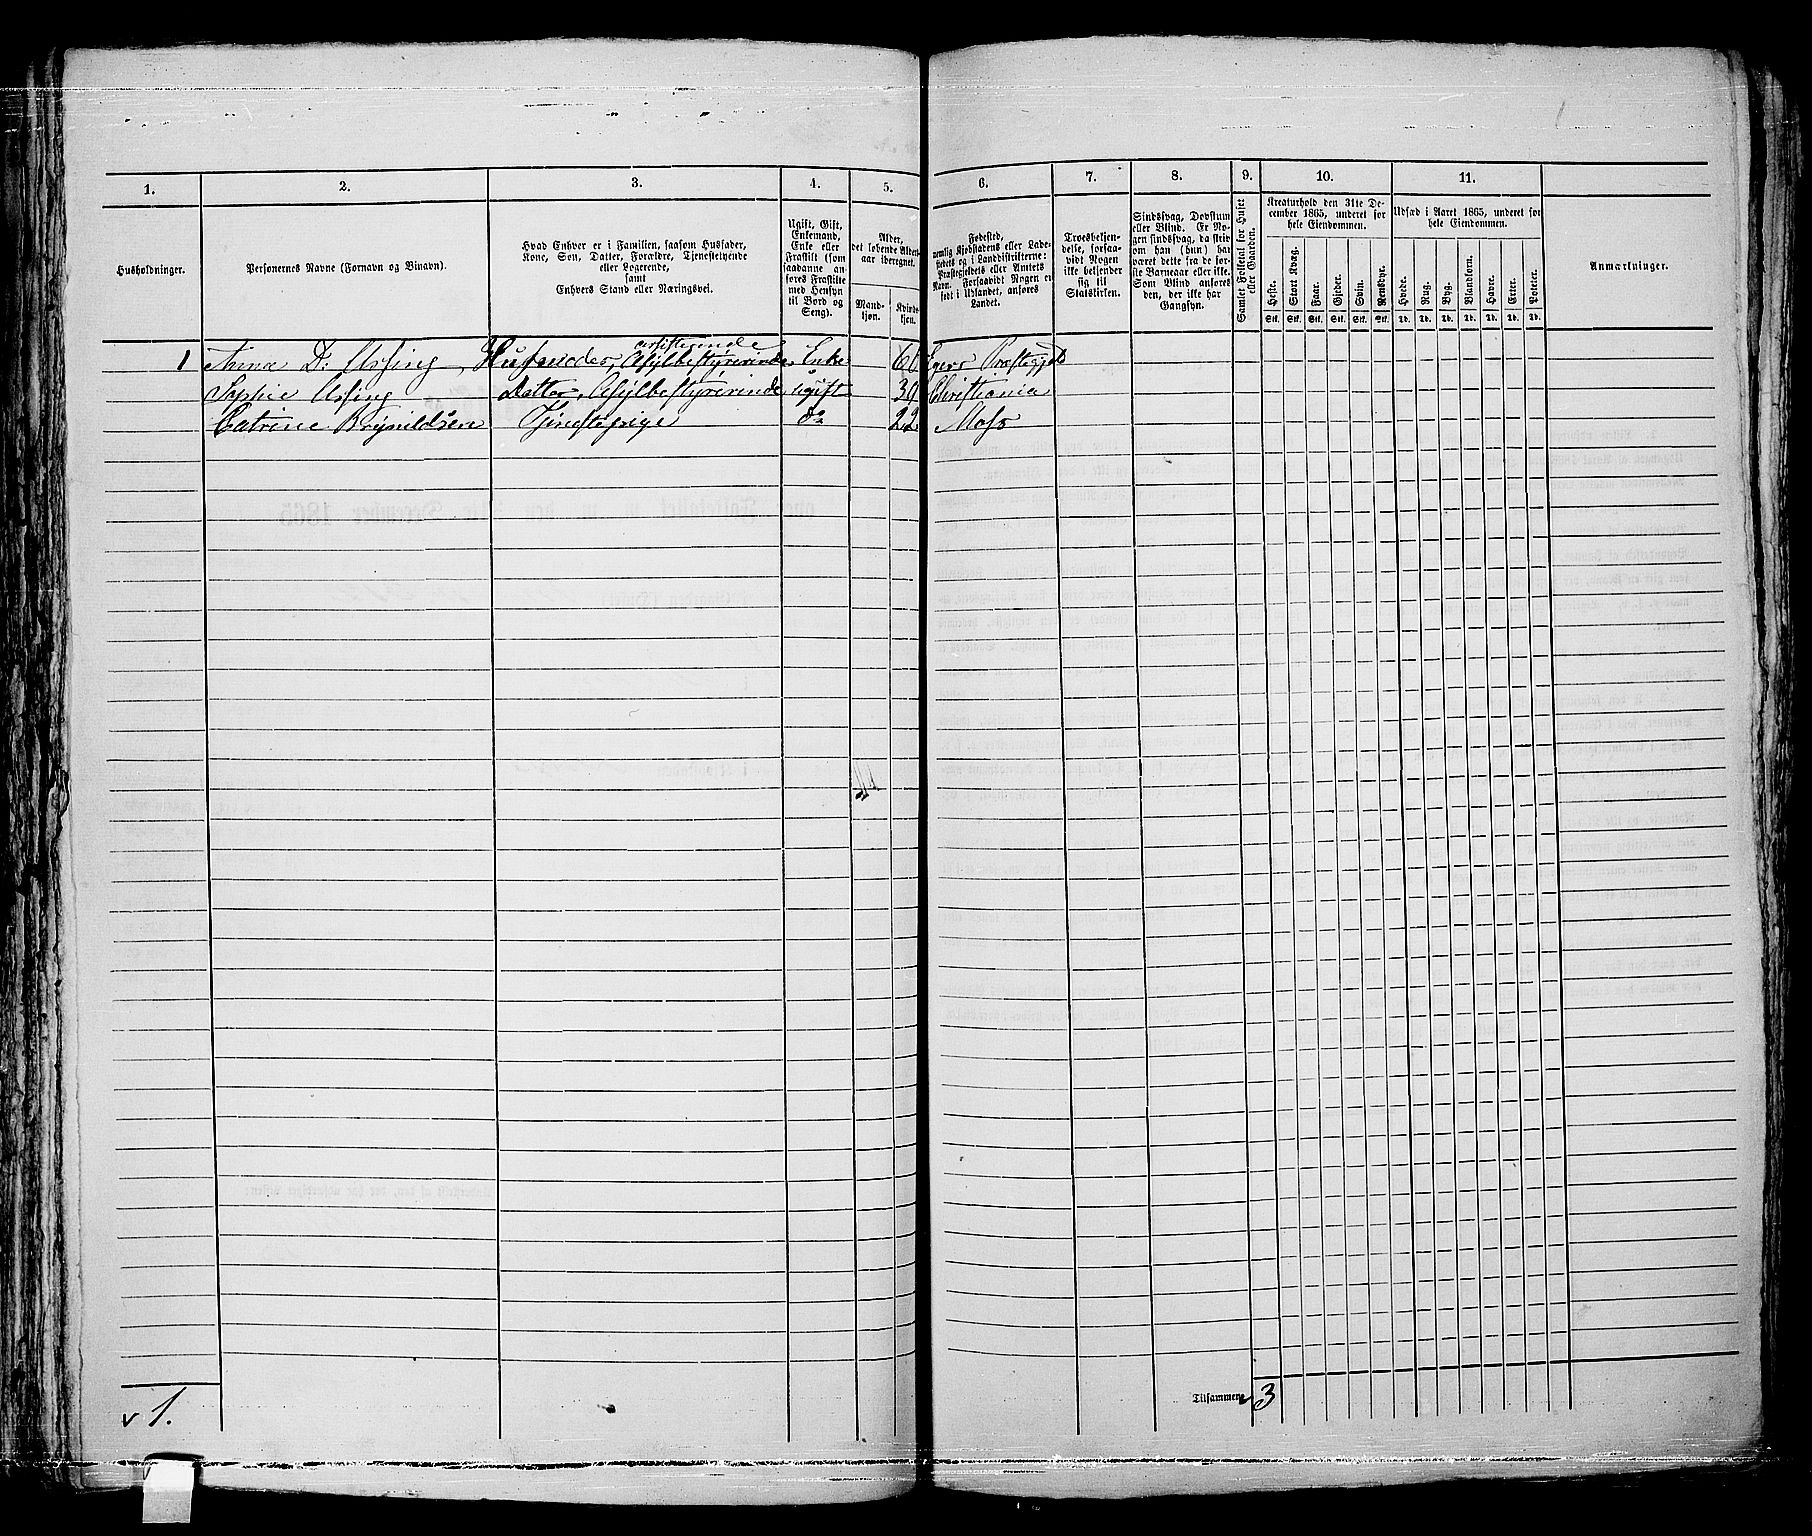 1. 2. 3. 4. 5. 6. 7. 8. 9. 10. 11.
Husholdninger.
Personernes Navne (Fornavn og Binavn).
Hvad Enhver er i Familien, saasom Husfader,
Kone, Søn, Datter, Forældre, Tjenestetyende
eller Logerende,
samt
Enhvers Stand eller Næringsvei.
Ugift, Gift,
Enkemand,
Enke eller
Fraskilt (som
saadanne an-
føres Fraskilte
med Hensyn
til Bord og
Seng).
Alder,
det løbende Alders-
aar iberegnet.
Mand-
kjøn.
Kvind-
kjøn.
Fødested,
nemlig Kjøbstadens eller Lade-
stedets og i Landdistrikterne:
Præstegjeldets eller Amtets
Navn. Forsaavidt Nogen er
født i Udlandet, anføres
Landet.
Troesbekjen-
delse, forsaa-
vidt Nogen
ikke bekjender
sig til
Statskirken.
Sindssvag, Døvstum
eller Blind. Er No-
gen sindssvag, da skriv
om han (hun) har
været dette fra de før-
ste Barneaar eller ikke.
Som Blind anføres
den, der ikke har
Gangsyn.
Samlet Folketal for Huset
eller Gaarden.
Kreaturhold den 31te De-
cember 1865, underet for
hele Eiendommen.
Heste. Stort Kvæg. Faar. Gjeder. Svin. Rensdyr.
Stk. Stk. Stk. Stk. Stk. Stk.
Udsæd i Aaret 1865, underet for
hele Eiendommen.
Hvede. Rug. Byg. Blandkorn. Havre. Erter. Poteter.
Td. Td. Td. Td. Td. Td. Td.
Anmærkninger.
assisterende
1 Anna D. Assing Husmoder, Asylbestyrerinde Enke 60 Egers Præstegjeld
Sophie Assing Datter, Asylbestyrerinde ugift 39 Christiania
Catrine Brynildsen Tjenestepige do 22 Moss
v 1.
Tilsammen v 3